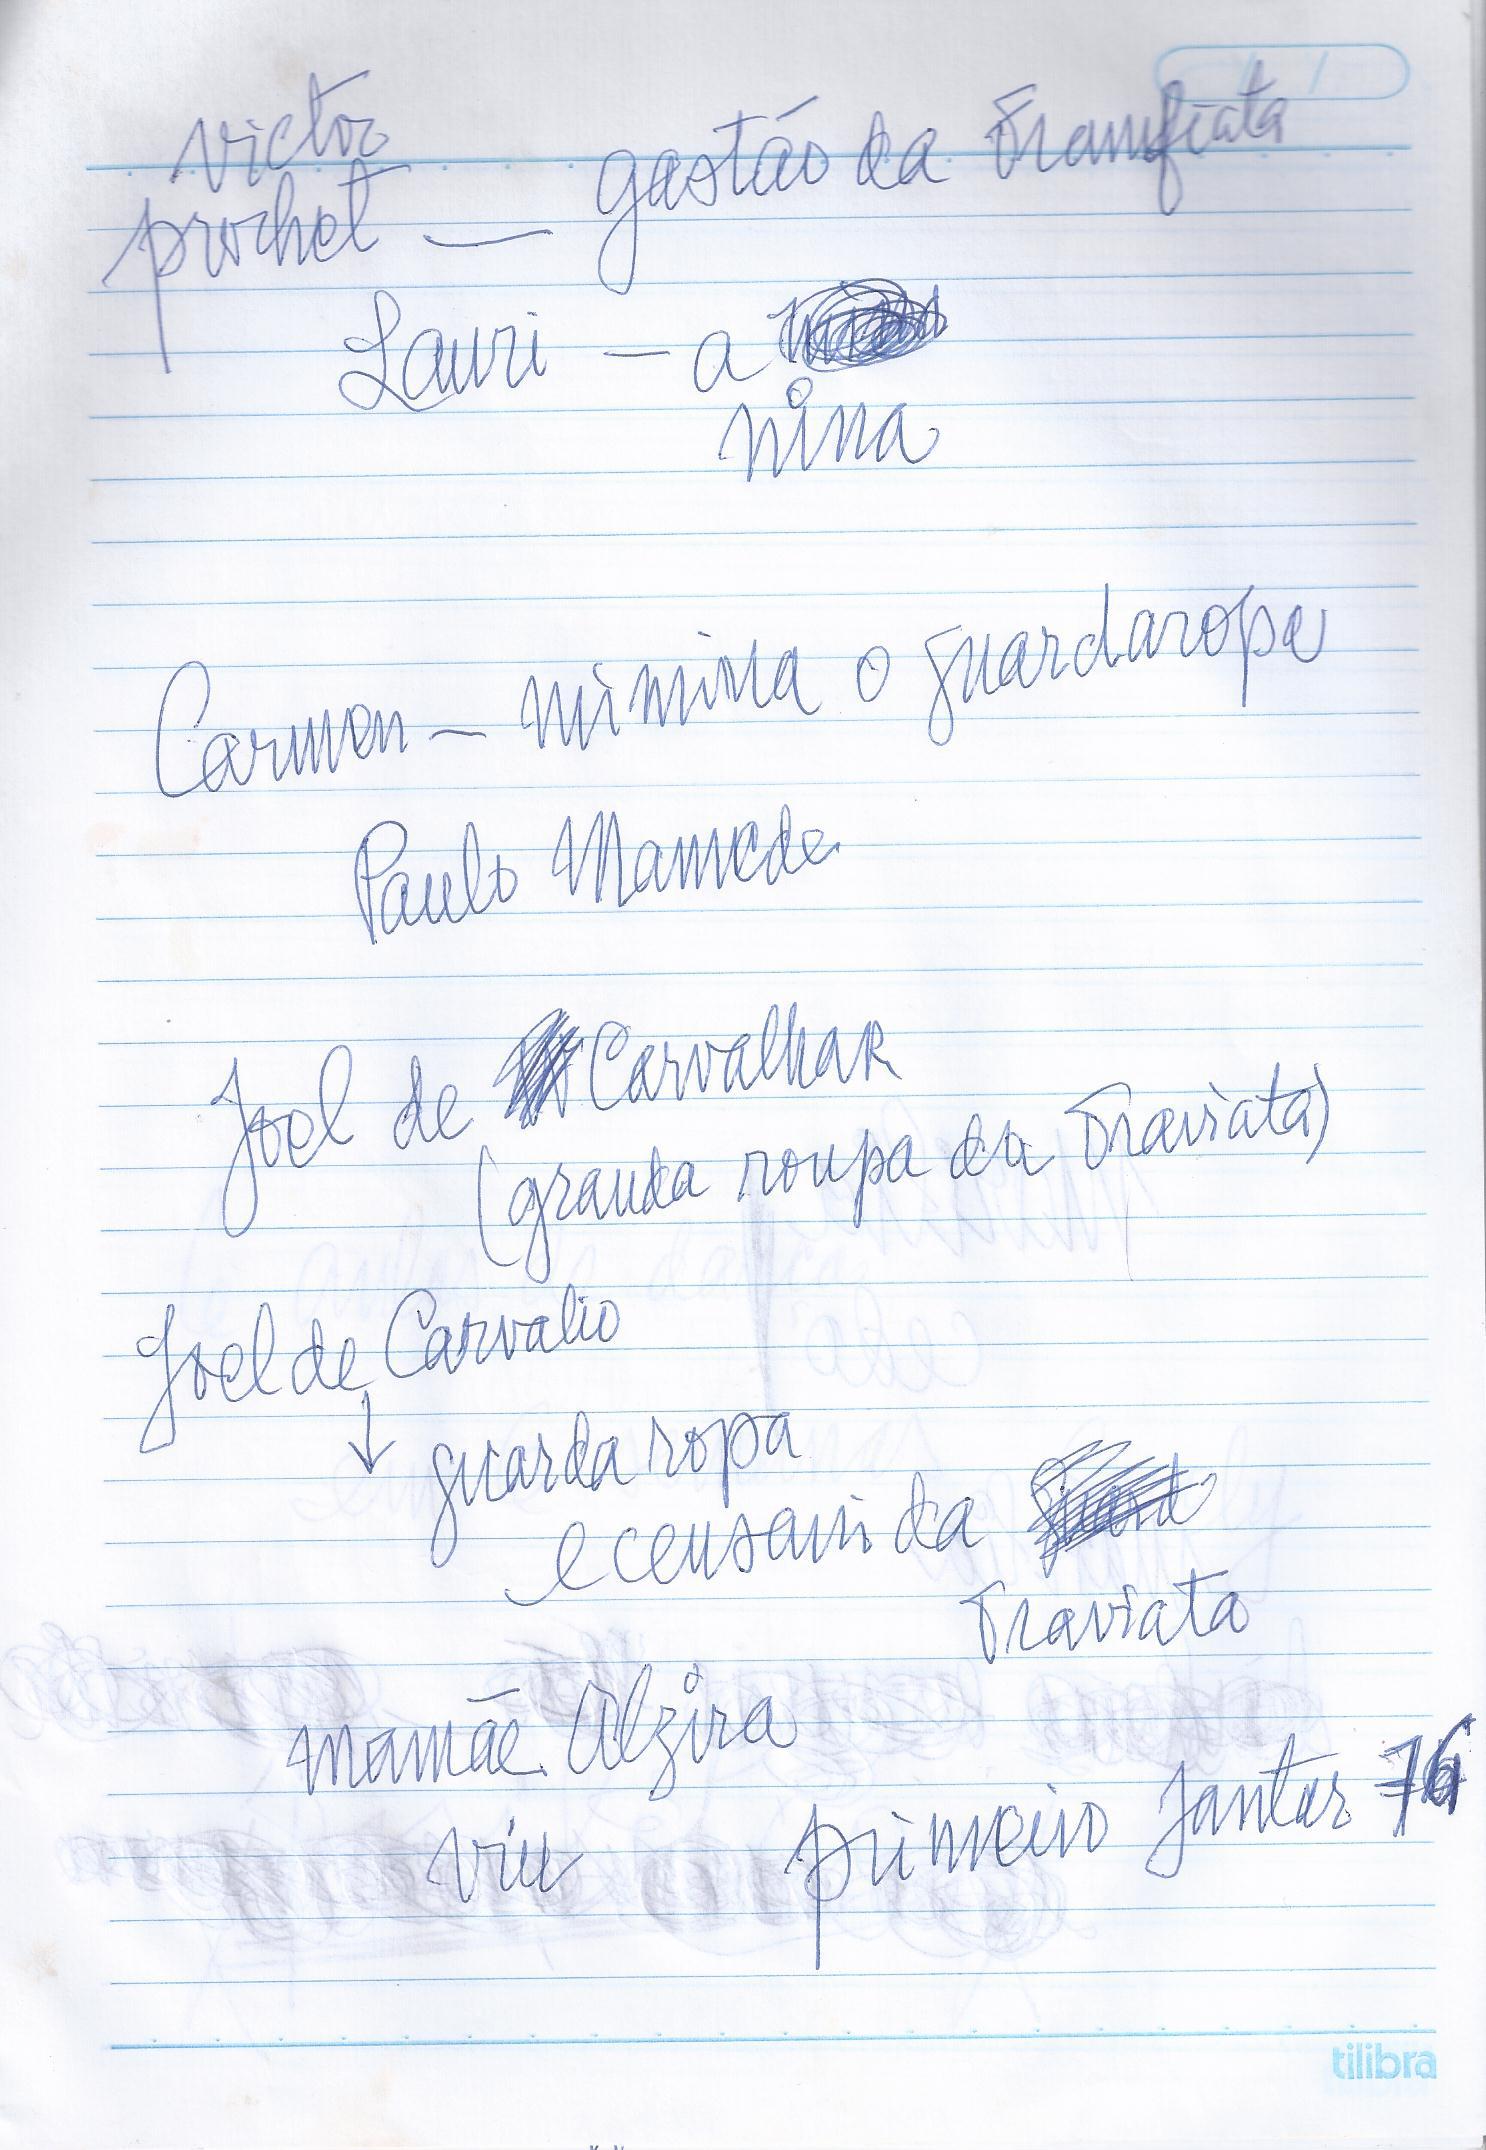 victor
prochet — gastão da Tramfiata
Lauri — a
nina
Carmen — mimina o guardaropa
Paulo Mamede
Joel de Carvalhar
(granda roupa da Traviata)
Joel de Carvalio
↓ guarda ropa
e censari da
Traviata
mamãe Alzira
viu primeiro jantar 76
tilibra